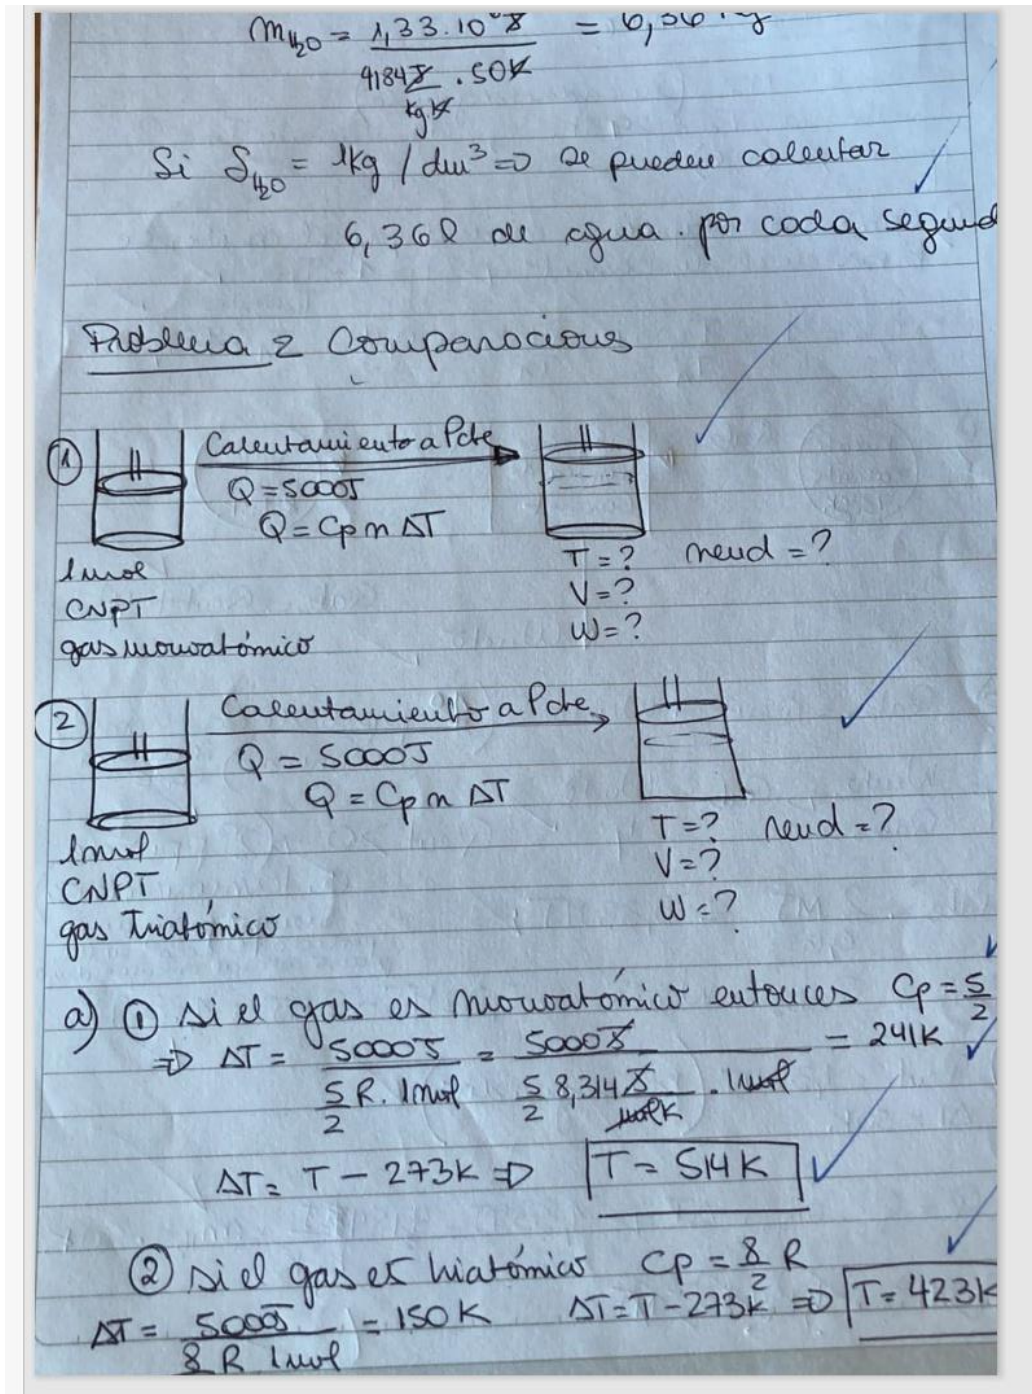 m_H2O = 1,33.10⁸ J / 4184 J/kg K . 50K = 6,36 kg
Si δ_H2O = 1kg / dm³ => se pueden calentar
6,36 l de agua. por cada segund
Problema 2 Comparaciones
① Calentamiento a Pcte
Q = 5000J
Q = Cp n ΔT
1mol
CNPT
gas monoatómico
T = ? rend = ?
V = ?
W = ?
② Calentamiento a Pcte
Q = 5000J
Q = Cp n ΔT
1mol
CNPT
gas Triatómico
T = ? rend = ?
V = ?
W = ?
a) ① si el gas es monoatómico entonces Cp = 5/2
=> ΔT = 5000J / 5/2 R . 1mol = 5000J / 5/2 8,314 J/mol K . 1mol = 241K
ΔT = T - 273K => T = 514K
② si el gas es triatómico Cp = 8/2 R
ΔT = 5000J / 8 R 1mol = 150K ΔT = T - 273K => T = 423K